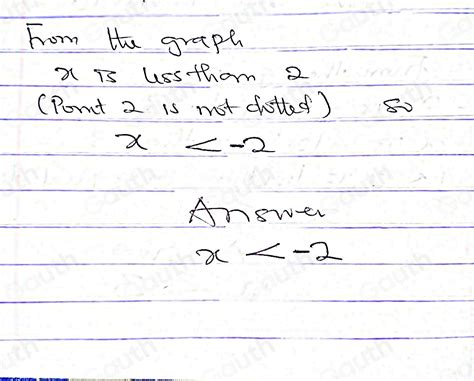 From the graph
x is less than 2
(Point 2 is not dotted) so
x < -2
Answer
x < -2